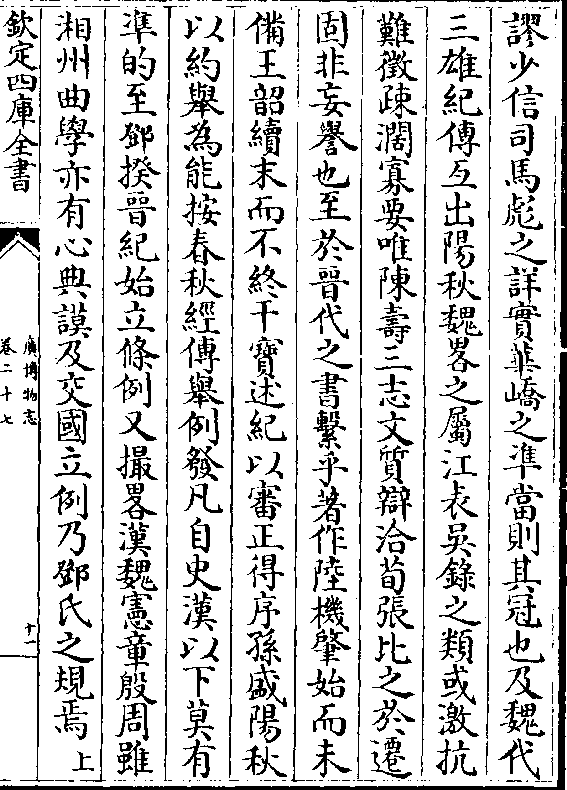 謬少信司馬彪之詳實華嶠之準當則其冠也及魏代
三雄紀傳互出陽秋魏畧之屬江表吳錄之類或激抗
難徵疎濶寡要唯陳壽三志文質辯洽荀張比之於遷
固非妄譽也至於晉代之書繫乎著作陸機肇始而未
備王韶續末而不終干寶述紀以審正得序孫盛陽秋
以約舉為能按春秋經傳舉例發凡自史漢以下莫有
準的至鄧揬晉紀始立條例又撮畧漢魏憲章殷周雖
湘州曲學亦有心典謨及交國立例乃鄧氏之規焉上
欽定四庫全書
廣博物志
卷二十七
十一